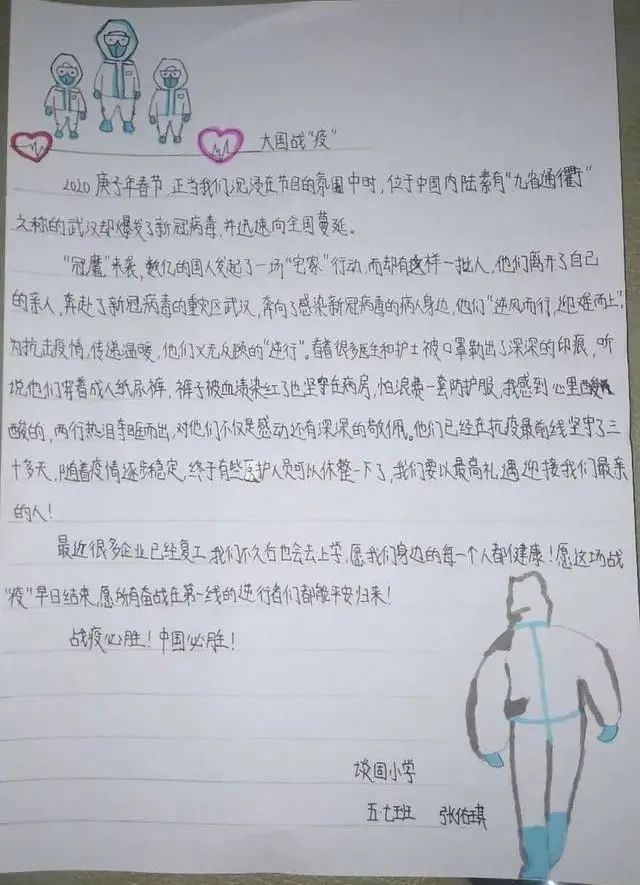 大国战“疫”
2020庚子年春节,正当我们沉浸在节日的氛围中时,位于中国内陆素有“九省通衢”
之称的武汉却爆发了新冠病毒,并迅速向全国蔓延。
“冠魔”来袭,数亿的国人发起了一场“宅家”行动,而却有这样一批人,他们离开了自己
的亲人,奔赴了新冠病毒的重灾区武汉,奔向了感染新冠病毒的病人身边,他们“逆风而行,迎难而上”,
为抗击疫情,传递温暖,他们义无反顾的“逆行”。看着很多医生和护士被口罩勒出了深深的印痕,听
说他们穿着成人纸尿裤,裤子被血渍染红了也坚守在病房,怕浪费一套防护服,我感到心里酸
酸的,两行热泪夺眶而出,对他们不仅是感动还有深深的敬佩。他们已经在抗疫最前线坚守了三
十多天,随着疫情逐步稳定,终于有些医护人员可以休整一下了,我们要以最高礼遇迎接我们最亲
的人!
最近很多企业已经复工,我们不久后也会去上学,愿我们身边的每一个人都健康!愿这场战
“疫”早日结束,愿所有奋战在第一线的逆行者们都能平安归来!
战疫必胜!中国必胜!
谈固小学
五.七班 张佑琪